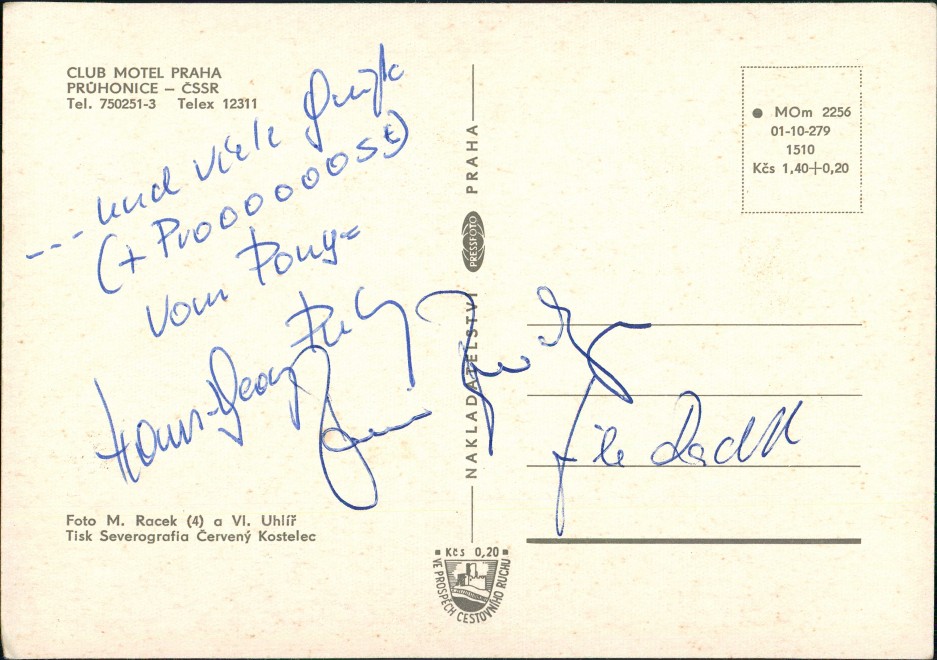 CLUB MOTEL PRAHA
PRŮHONICE – ČSSR
Tel. 750251-3 Telex 12311
--- und viele
(+ Prooooooos t)
vom Pony=
Hans-Georg
Foto M. Racek (4) a Vl. Uhlíř
Tisk Severografia Červený Kostelec
NAKLADATELSTVÍ PRESSFOTO PRAHA
Kčs 0,20
VE PROSPĚCH CESTOVNÍHO RUCHU
MOm 2256
01-10-279
1510
Kčs 1,40+0,20